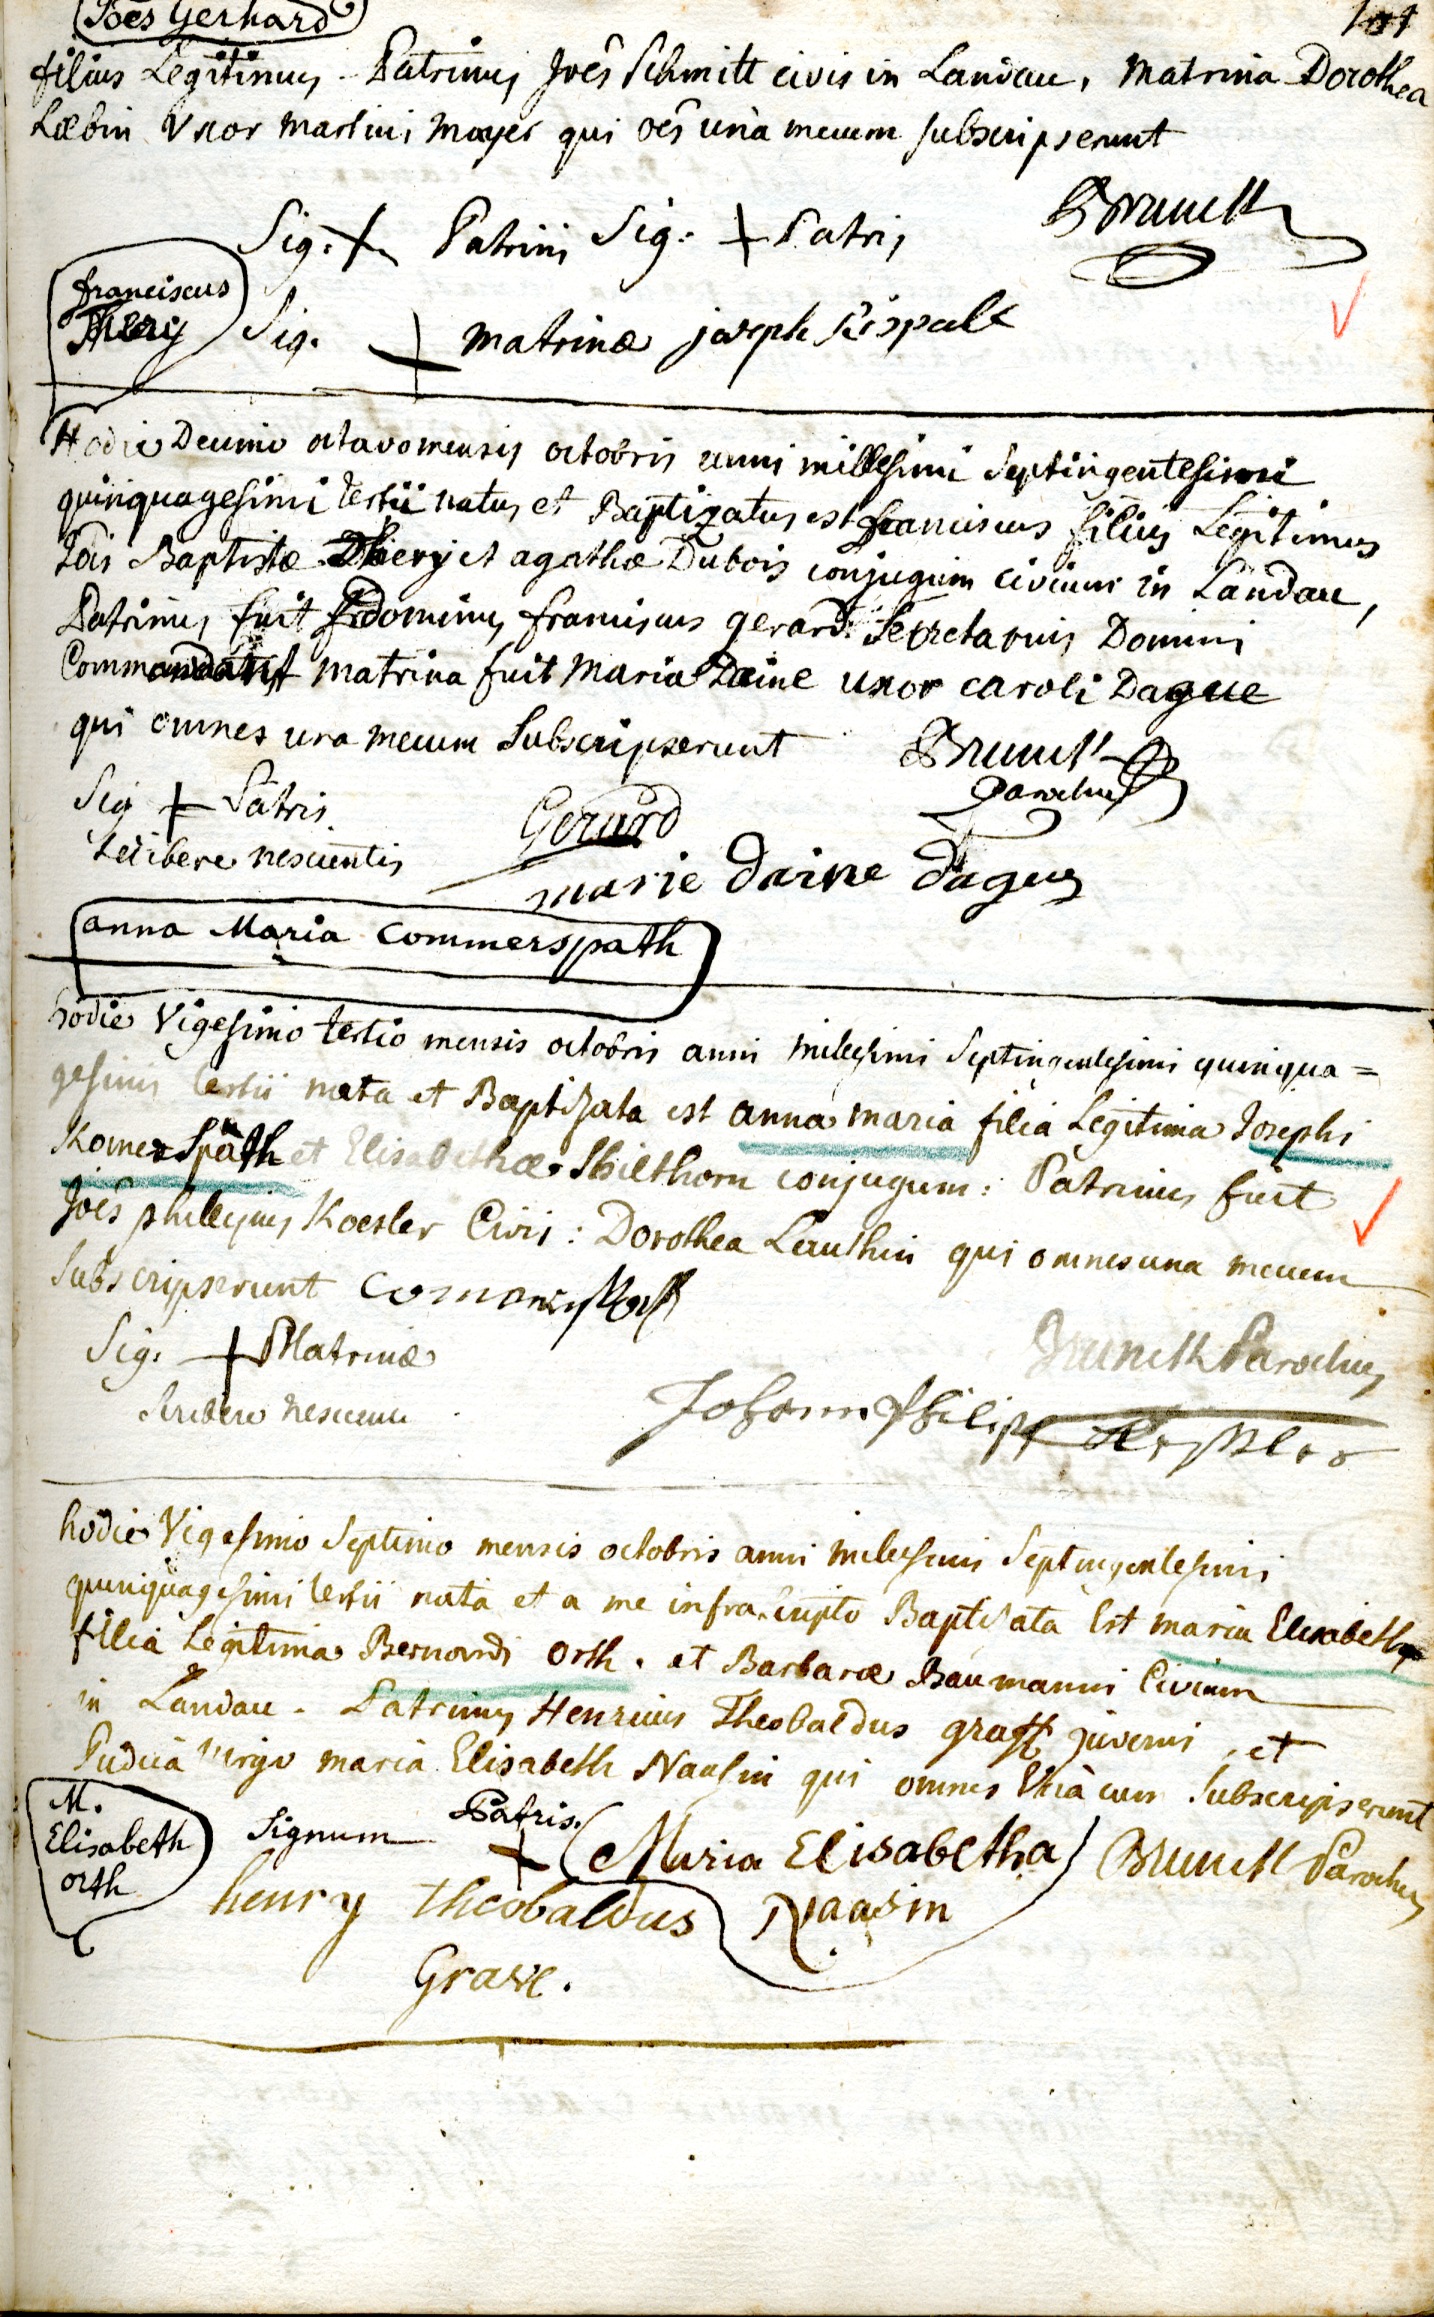 Joes Gerhard
filius Legitimus. Patrinus Joês Schmitt civis in Landau, Matrina Dorothea
Læbin Uxor Martini Mayer qui oês unà mecum subscripserunt
Sig. + Patrini Sig: + Patris Brunck
franciscus
Thery
Sig. + matrinæ joseph
Hodie Decimo octavo mensis octobris anni millesimi Septingentesimi
quinquagesimi tertii natus et Baptizatus est franciscus filius Legitimus
Jois Baptistæ Thery et agathæ Dubois conjugum civium in Landau,
Patrinus fuit dominus franciscus gerard: Secretarius Domini
Commandant matrina fuit Maria Daine uxor caroli Dague
qui omnes una mecum Subscripserunt Brunck
Parochus
Sig + Patris
scribere nescientis
Gerard
marie daine dague
anna Maria Commerspath
hodie Vigesimo tertio mensis octobris anni milesimi Septingentesimi quinqua=
gesimi tertii nata et Baptizata est anna maria filia Legitima Josephi
Komer Späth et Elisabethæ Shilthorn conjugum: Patrinus fuit
Joês philippus Koesler Civis: Dorothea Lauthin qui omnes una mecum
Subscripserunt
Sig. + Matrinæ Brunck Parochus
scribere nescientis
Johann Philipp
hodie Vigesimo Septimo mensis octobris anni milesimi Septingentesimi
quinquagesimi tertii nata et a me infrascripto Baptisata Est maria Elisabetha
filia Legitima Bernardi Orth. et Barbaræ Baumanni Civium
in Landau. Patrinus Henricus Theobaldus graff juvenis, et
Pudica virgo maria Elisabeth Naasin qui omnes Unà cum Subscripserunt
M.
Elisabeth
Orth
Signum Patris +
Maria Elisabetha
Naasin
Brunck Parochus
henry theobaldus
Grave.